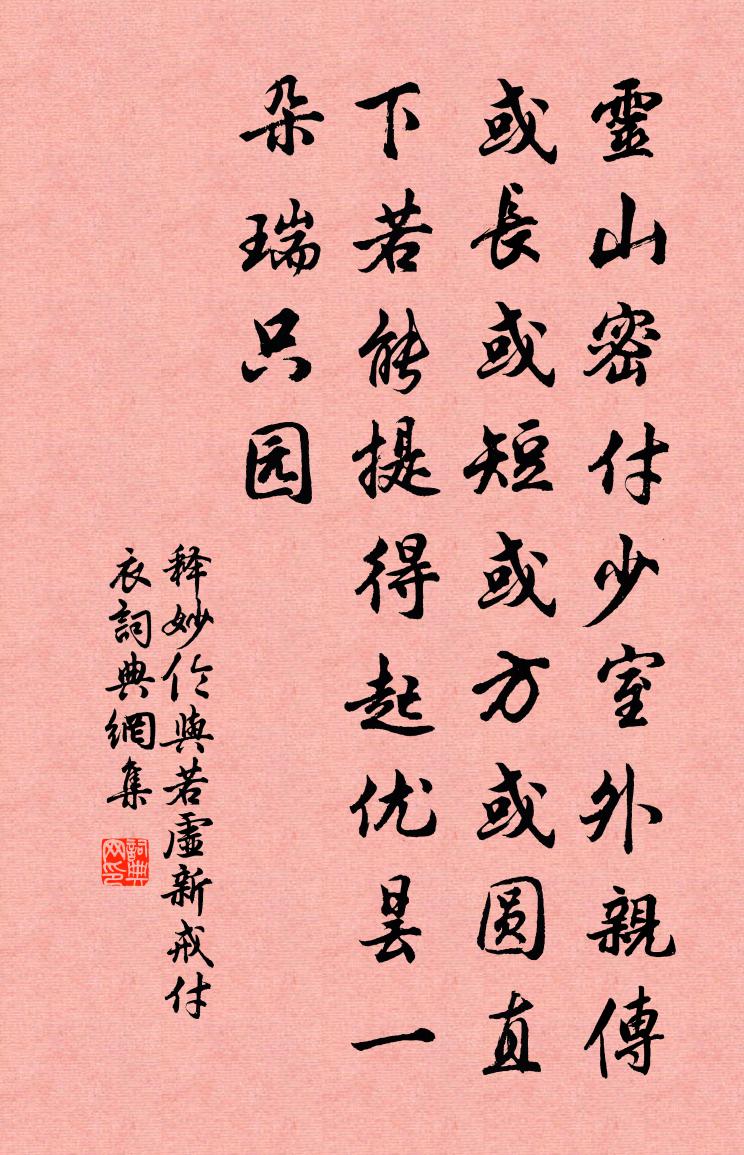 靈山密付少室外親傳
或長或短或方或圆直
下若能提得起优昙一
朵瑞只园
释妙伦與若虛新戒付
衣詞典網集
詞典
网印